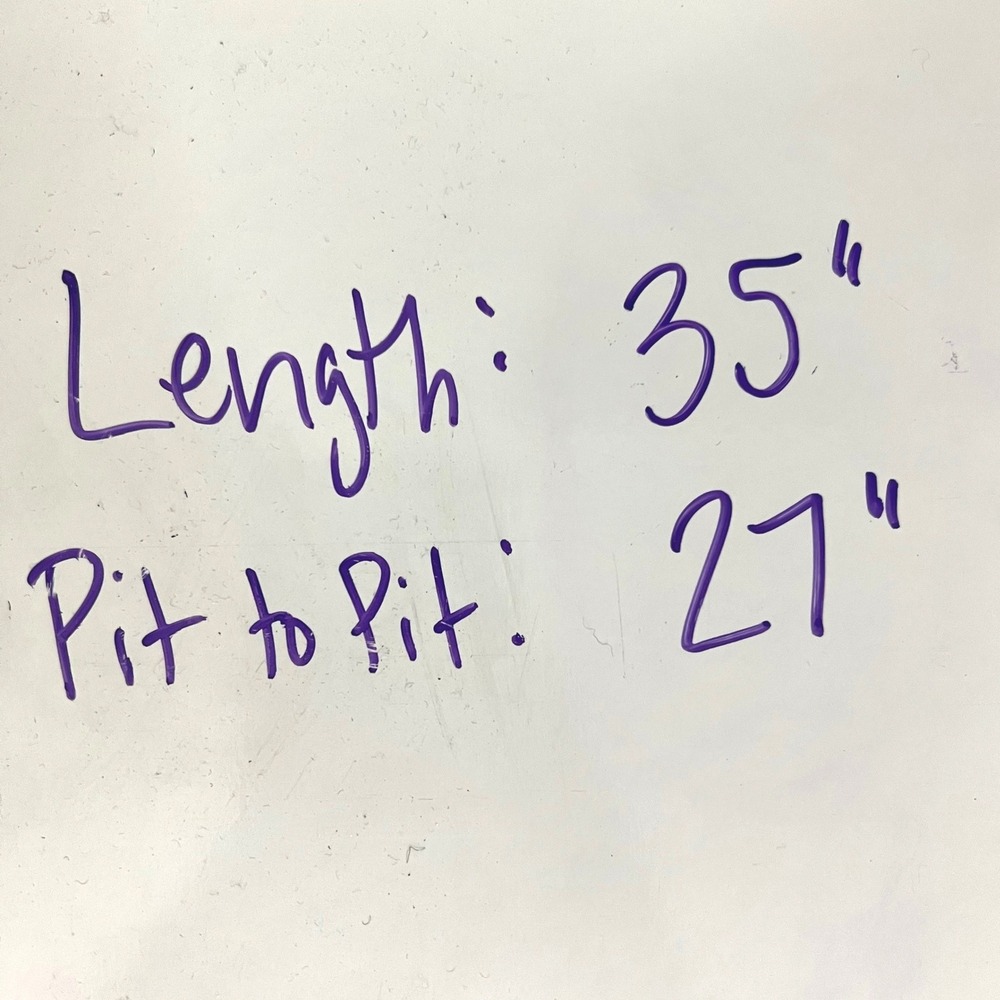 Length: 35"
Pit to Pit: 27"